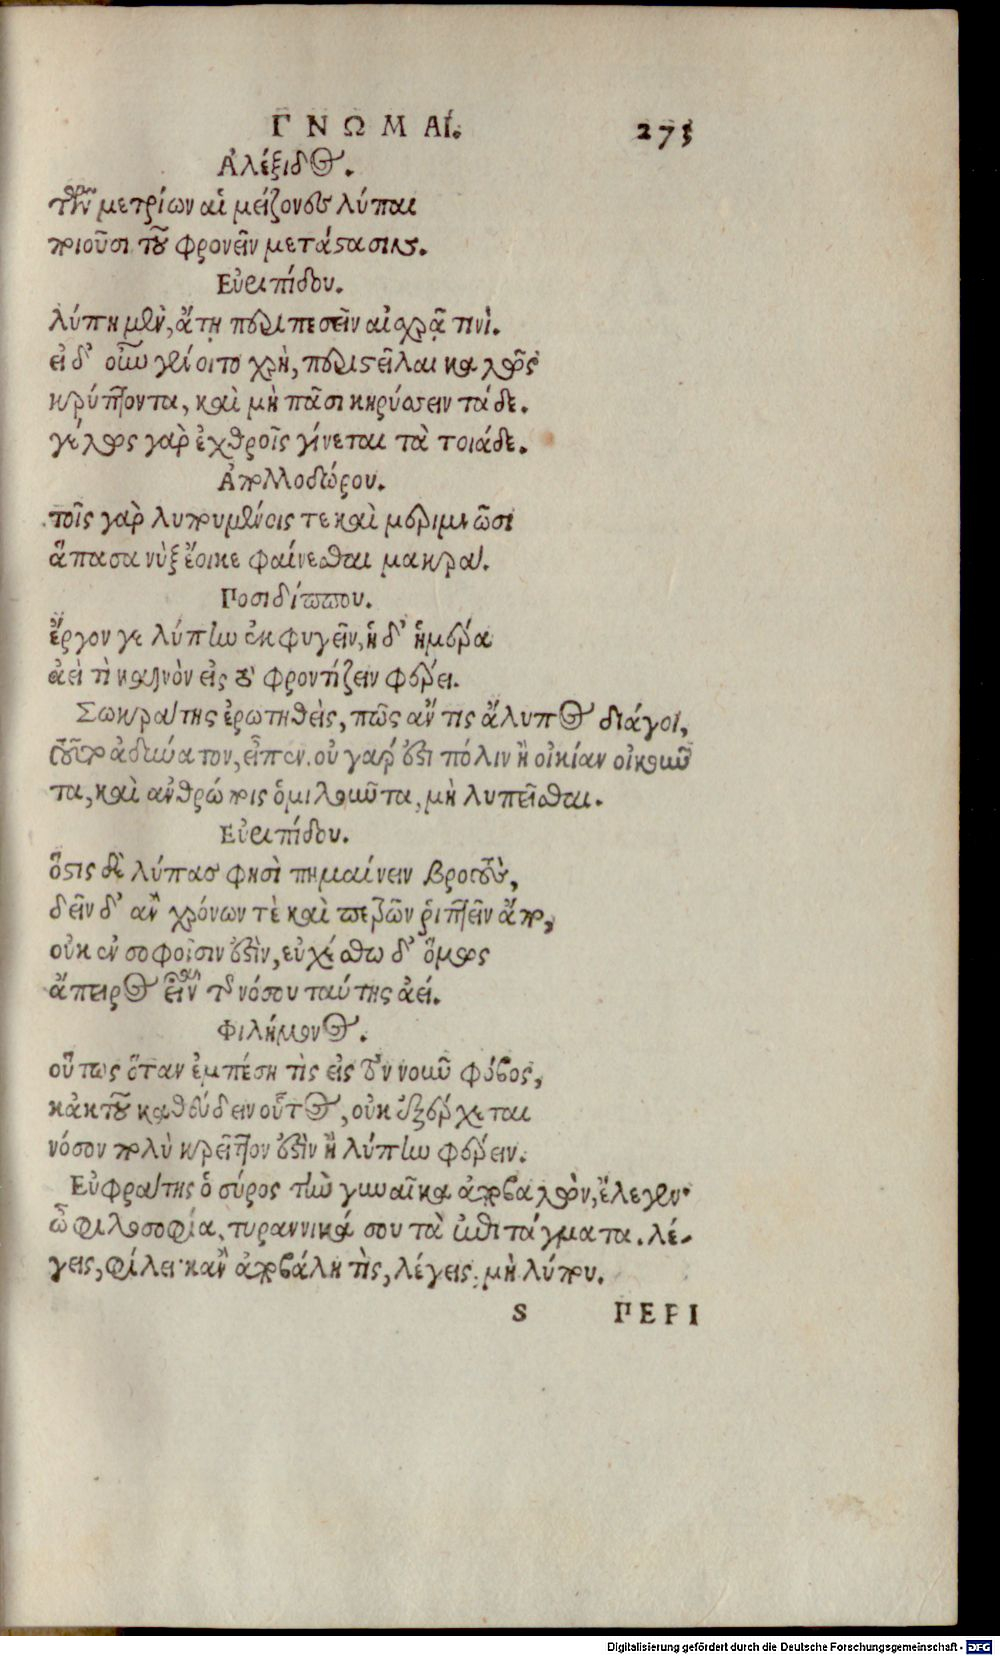 ΓΝΩΜΑΙ. 275
Ἀλέξιδος.
τῶν μετρίων αἱ μείζονες λύπαι
ποιοῦσι τοῦ φρονεῖν μετάστασιν.
Εὐριπίδου.
λύπη μὲν, ἄτῃ περιπεσεῖν αἰσχρᾷ τινί.
εἰ δ' οὖν γένοιτο χρὴ, περιστεῖλαι καλῶς
κρύπτοντα, καὶ μὴ πᾶσι κηρύσσειν τάδε.
γέλως γὰρ ἐχθροῖς γίνεται τὰ τοιάδε.
Ἀπολλοδώρου.
τοῖς γὰρ λυπουμένοις τε καὶ μεριμνῶσι
ἅπασα νὺξ ἔοικε φαίνεσθαι μακρά.
Ποσιδίππου.
ἔργον γε λύπην ἐκφυγεῖν, ἡ δ' ἡμέρα
ἀεὶ τὶ καινὸν εἰς τὸ φροντίζειν φέρει.
Σωκράτης ἐρωτηθεὶς, πῶς ἄν τις ἄλυπος διάγοι,
τοῦτο ἀδύνατον, εἶπεν. οὐ γάρ ἐστι πόλιν ἢ οἰκίαν οἰκοῦν
τα, καὶ ἀνθρώποις ὁμιλοῦντα, μὴ λυπεῖσθαι.
Εὐριπίδου.
ὅστις δὲ λύπας φησὶ πημαίνειν βροτοὺς,
δεῖν δ' ἂν χρόνων τὲ καὶ πετρῶν ῥιπτεῖν ἄπο,
οὐκ ἐν σοφοῖσιν ἐστὶν, εὐχέσθω δ' ὅμως
ἄπειρος εἶναι τῆς νόσου ταύτης ἀεί.
Φιλήμονος.
οὕτως ὅταν ἐμπέσῃ τὶς εἰς τὸν νοῦν φόβος,
κἀκ τοῦ καθεύδειν οὗτος, οὐκ ἐξέρχεται
νόσον πολὺ κρεῖττον ἐστὶν ἢ λύπην φέρειν.
Εὐφράτης ὁ σύρος τὴν γυναῖκα ἀποβαλὼν, ἔλεγεν·
ὦ φιλοσοφία, τυραννικά σου τὰ ἐπιτάγματα. λέ-
γεις, φίλει· κἂν ἀποβάλῃ τὶς, λέγεις, μὴ λύπου.
S ΠΕΡΙ
Digitalisierung gefördert durch die Deutsche Forschungsgemeinschaft - DFG